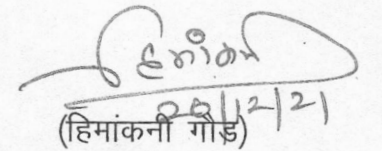 हिमांकनी
20/12/21
(हिमांकनी गौड़)